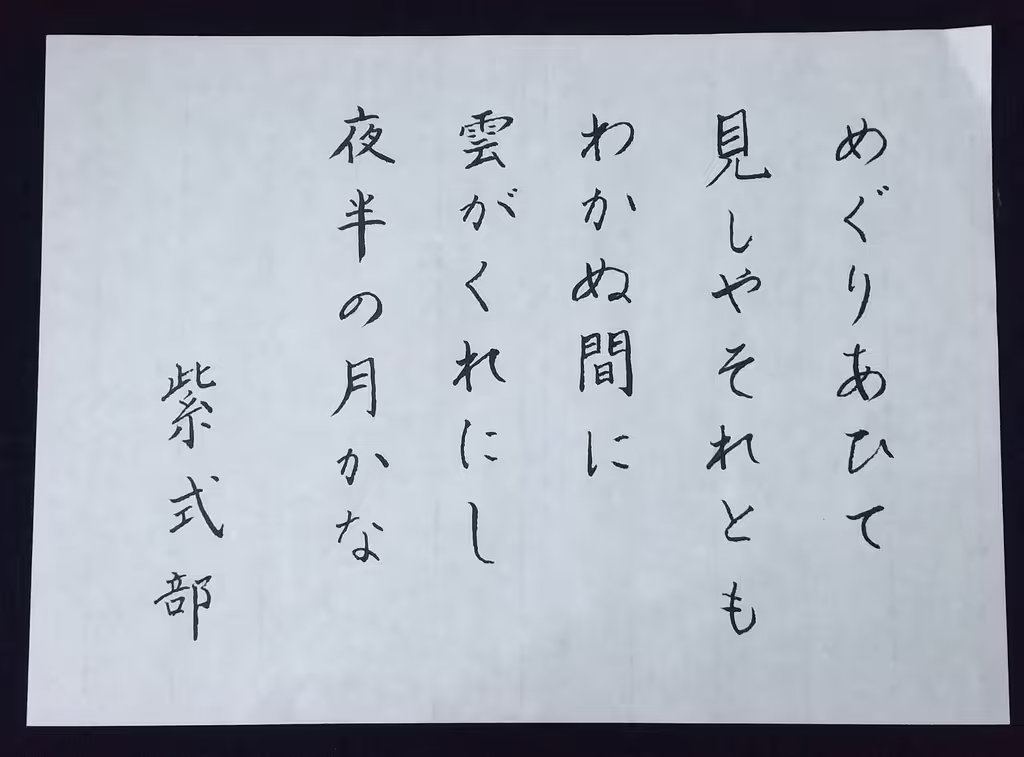 めぐりあひて
見しやそれとも
わかぬ間に
雲がくれにし
夜半の月かな
紫式部